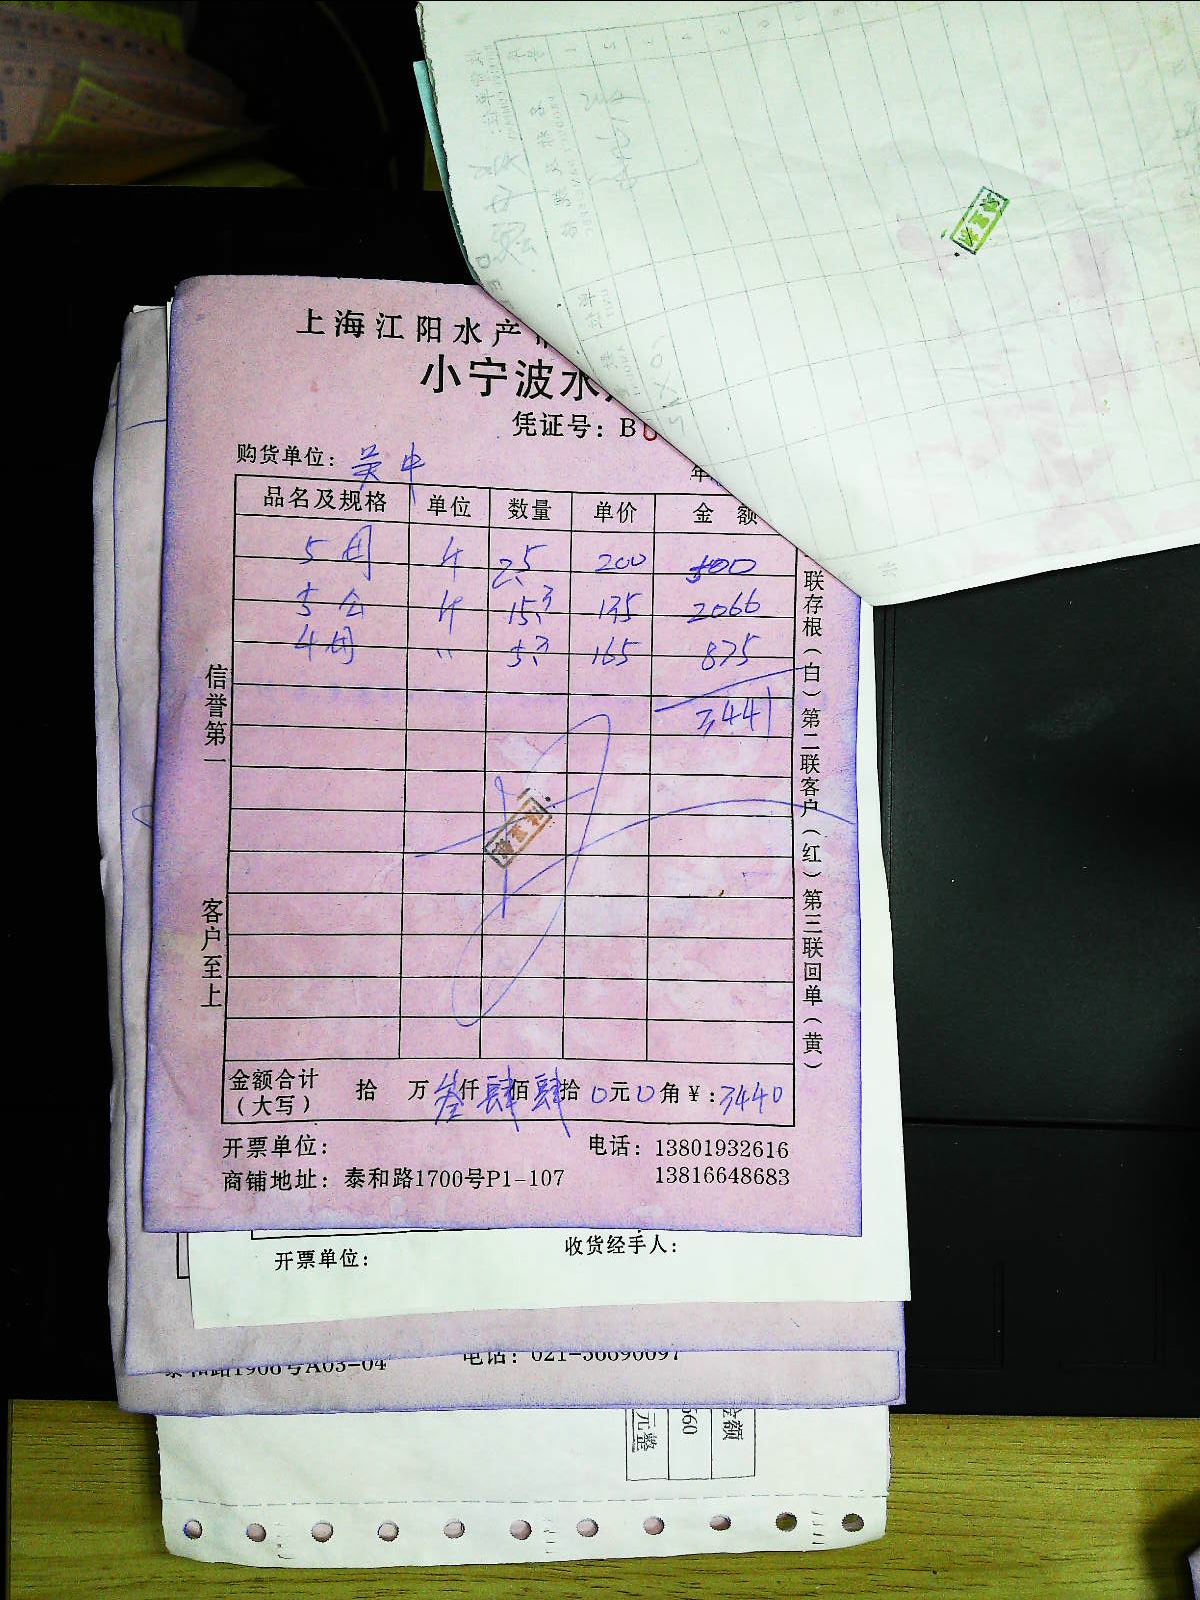 上海江阳水产
小宁波水
凭证号：B
购货单位：吴中
年
品名及规格 单位 数量 单价 金 额
5母 斤 2.5 200 500
5公 斤 15.3 135 2066
4母 〃 5.3 165 875
3441
信誉第一
客户至上
联存根（白）第二联客户（红）第三联回单（黄）
金额合计（大写） 拾 万 叁仟肆佰肆拾0元0角¥：3440
开票单位： 电话：13801932616
商铺地址：泰和路1700号P1-107 13816648683
开票单位： 收货经手人：
泰和路1908号A03-04 电话：021-56690097
金额
560
元整